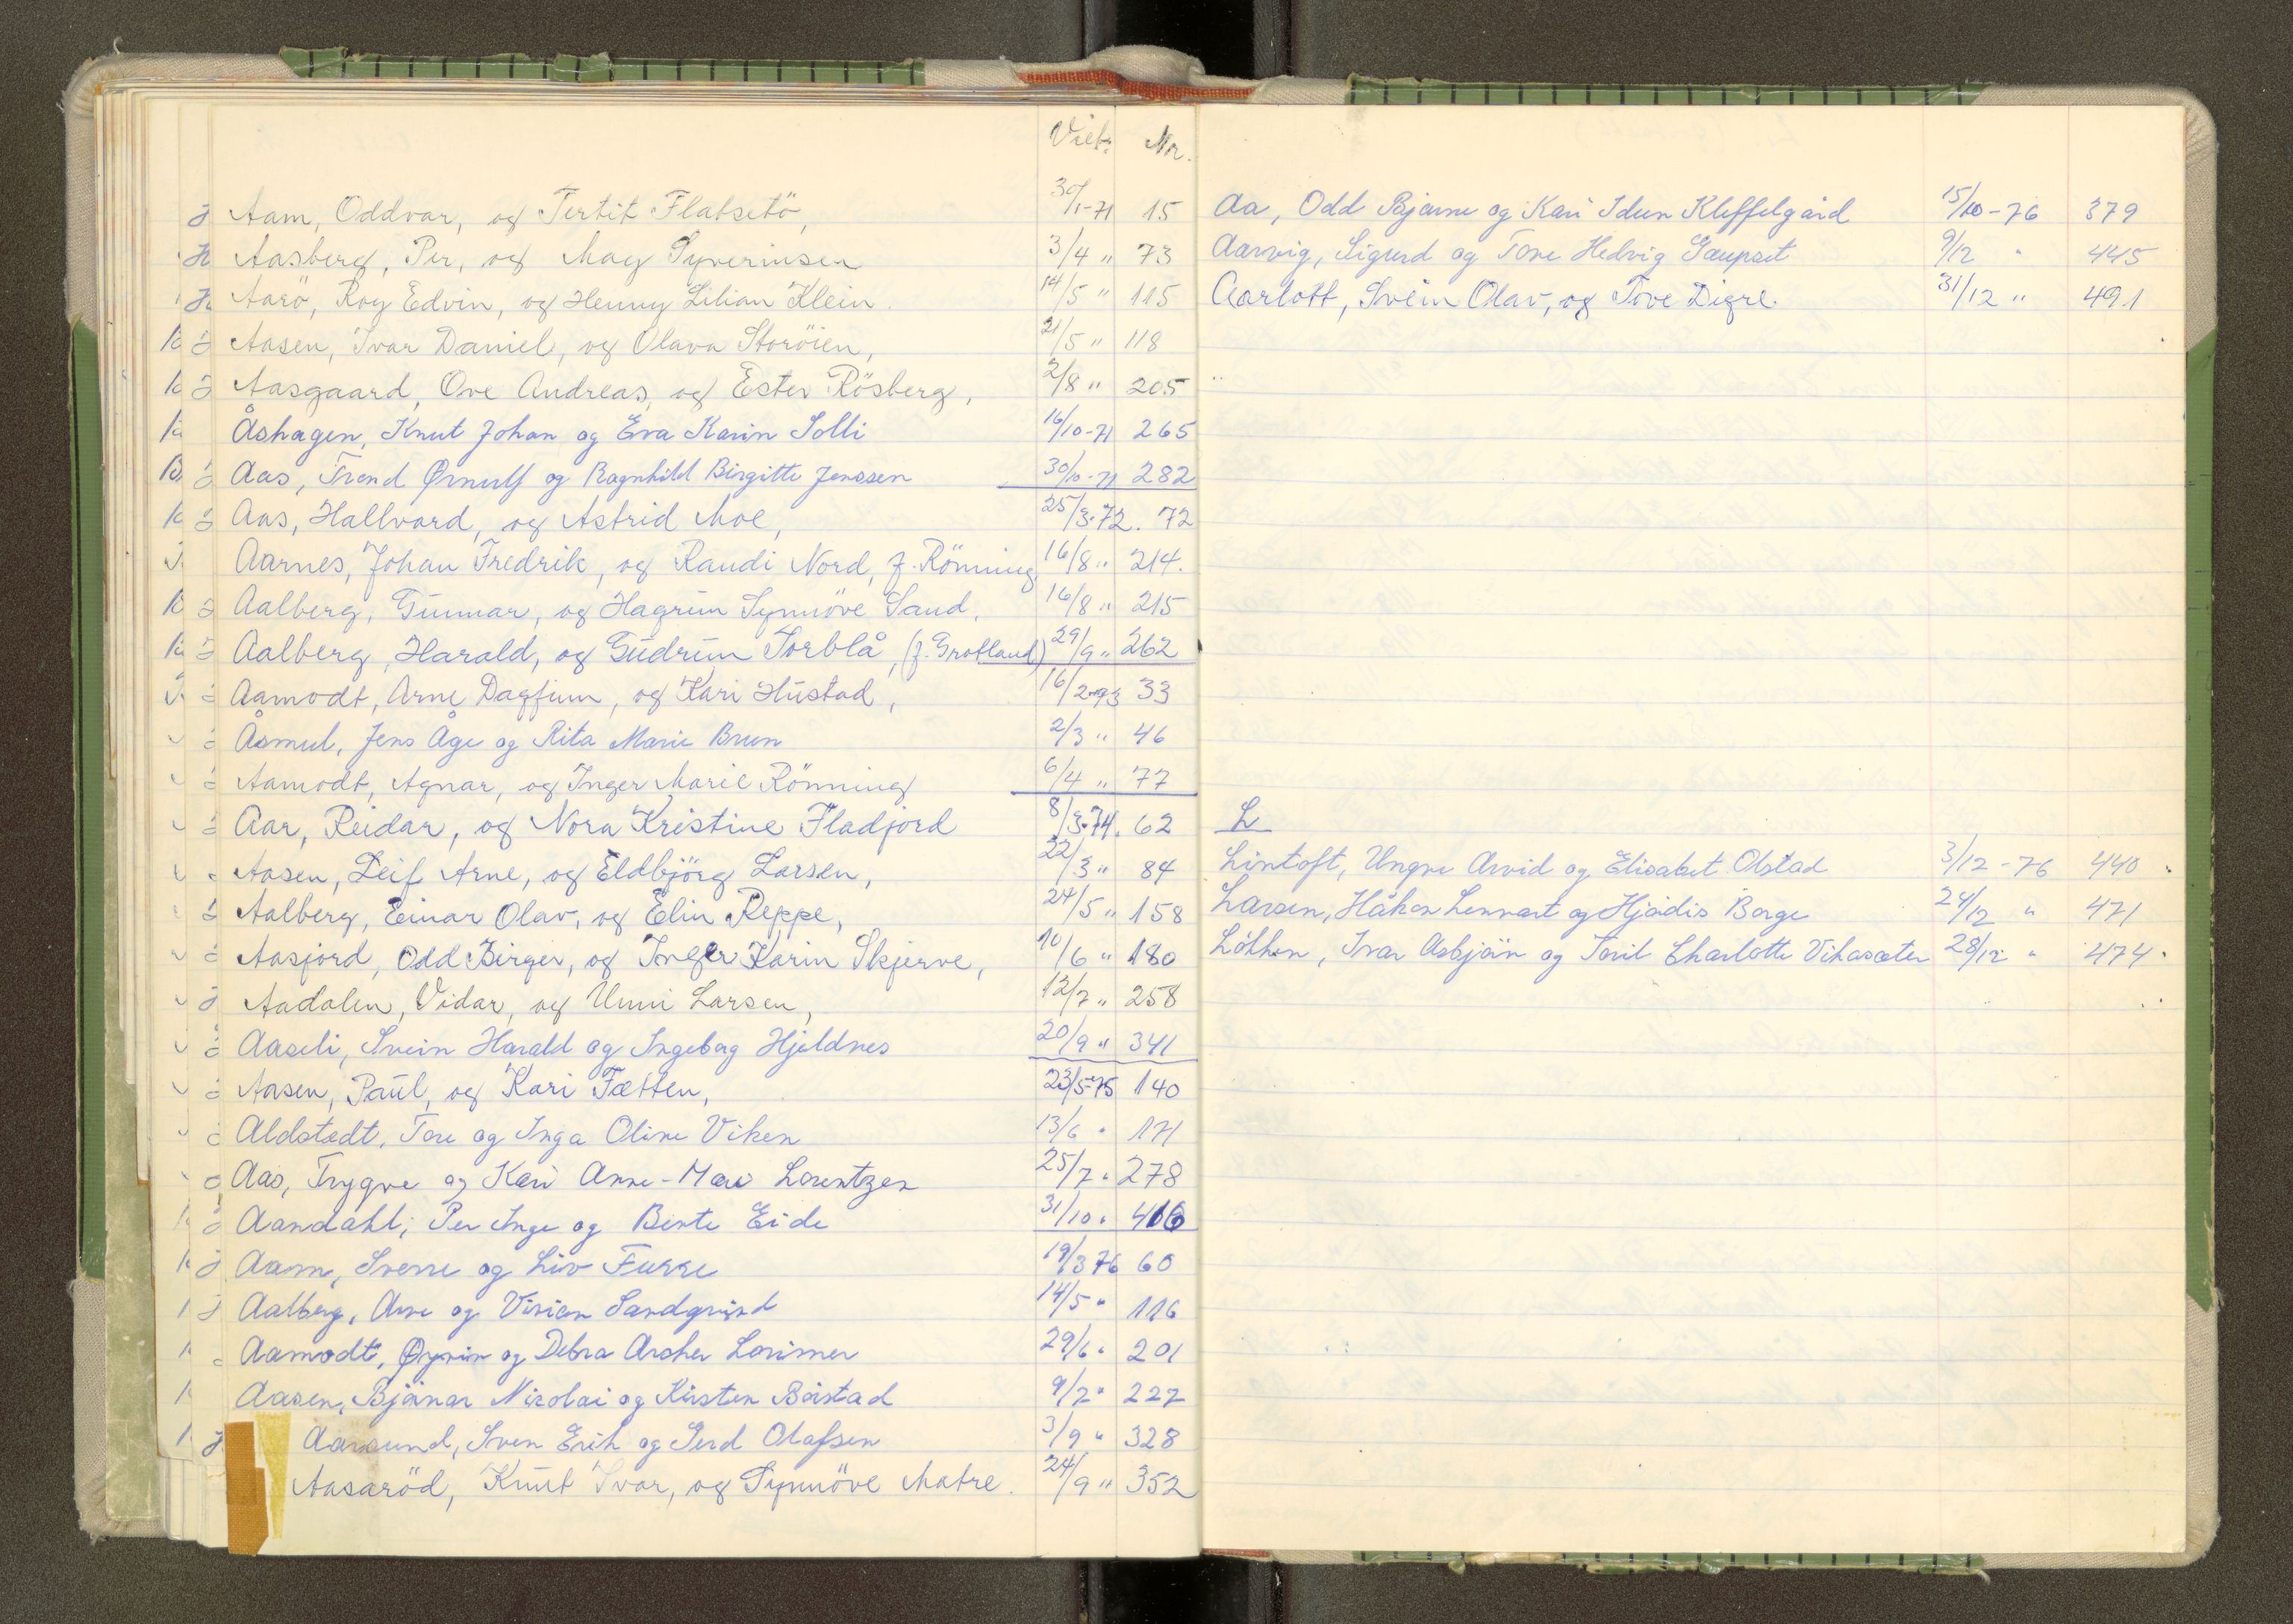 Viet: Nr.
Aam, Oddvar, og Tertit Flatsetö, 30/1-71 15
Aasberg, Per, og May Syverinsen 3/4 " 73
Aarö, Roy Edvin, og Henny Lilian Klein. 14/5 " 115
Aasen, Ivar Daniel, og Olava Storöien, 21/5 " 118
Aasgaard, Ove Andreas, og Ester Rösberg, 2/8 " 205
Åshagen, Knut Johan og Eva Karin Solli 16/10-71 265
Aas, Trond Ørnulf og Ragnhild Birgitte Jenssen 30/10-71 282
Aas, Hallvard, og Astrid Moe, 25/3-72. 72
Aarnes, Johan Fredrik, og Randi Nord, f. Rönning 16/8 " 214.
Aalberg, Gunnar, og Hagrun Synnöve Sand, 16/8 " 215
Aalberg, Harald, og Gudrun Sorblå, (f. Grotland) 29/9 " 262
Aamodt, Arne Dagfinn, og Kari Hustad, 16/2-73 33
Åsmul, Jens Åge og Rita Marie Brun 2/3 " 46
Aamodt, Agnar, og Inger Marie Rönning 6/4 " 77
Aar, Reidar, og Nora Kristine Fladjord 8/3-74. 62
Aasen, Leif Arne, og Eldbjörg Larsen, 22/3 " 84
Aalberg, Einar Olav, og Elin Reppe, 24/5 " 158
Aasjord, Odd Birger, og Inger Karin Skjerve, 10/6 " 180
Aadalen, Vidar, og Unni Larsen, 12/7 " 258
Aaseli, Svein Harald og Ingeborg Hjeldnes 20/9 " 341
Aasen, Paul, og Kari Fætten, 23/5-75 140
Aldstedt, Tore og Inga Oline Viken 13/6 " 171
Aas, Trygve og Kari Anne-Mari Lorentzen 25/7 " 278
Aandahl, Per Inge og Bente Eide 31/10 " 416
Aam, Sverre og Liv Furre 19/3 76 60
Aalberg, Arne og Vivian Sandqvist 14/5 " 116
Aamodt, Øyvin og Debra Archer Lorimer 29/6 " 201
Aasen, Bjørnar Nicolai og Kirsten Børstad 9/7 " 227
Aarsund, Sven Erik og Gerd Olafsen 3/9 " 328
Aasaröd, Knut Ivar, og Synnöve Matre. 24/9 " 352
Aa, Odd Bjarne og Kari Idun Kleffelgård 15/10-76 379
Aarvig, Sigurd og Tove Hedvig Gaupset 9/12 " 445
Aarlott, Svein Olav, og Tove Digre. 31/12 " 491
L
Lintoft, Yngve Arvid og Elisabet Olstad 3/12-76 440
Larsen, Håkon Lennart og Hjørdis Borge 24/12 " 471
Løkken, Ivar Asbjørn og Toril Charlotte Vikasæter 28/12 " 474